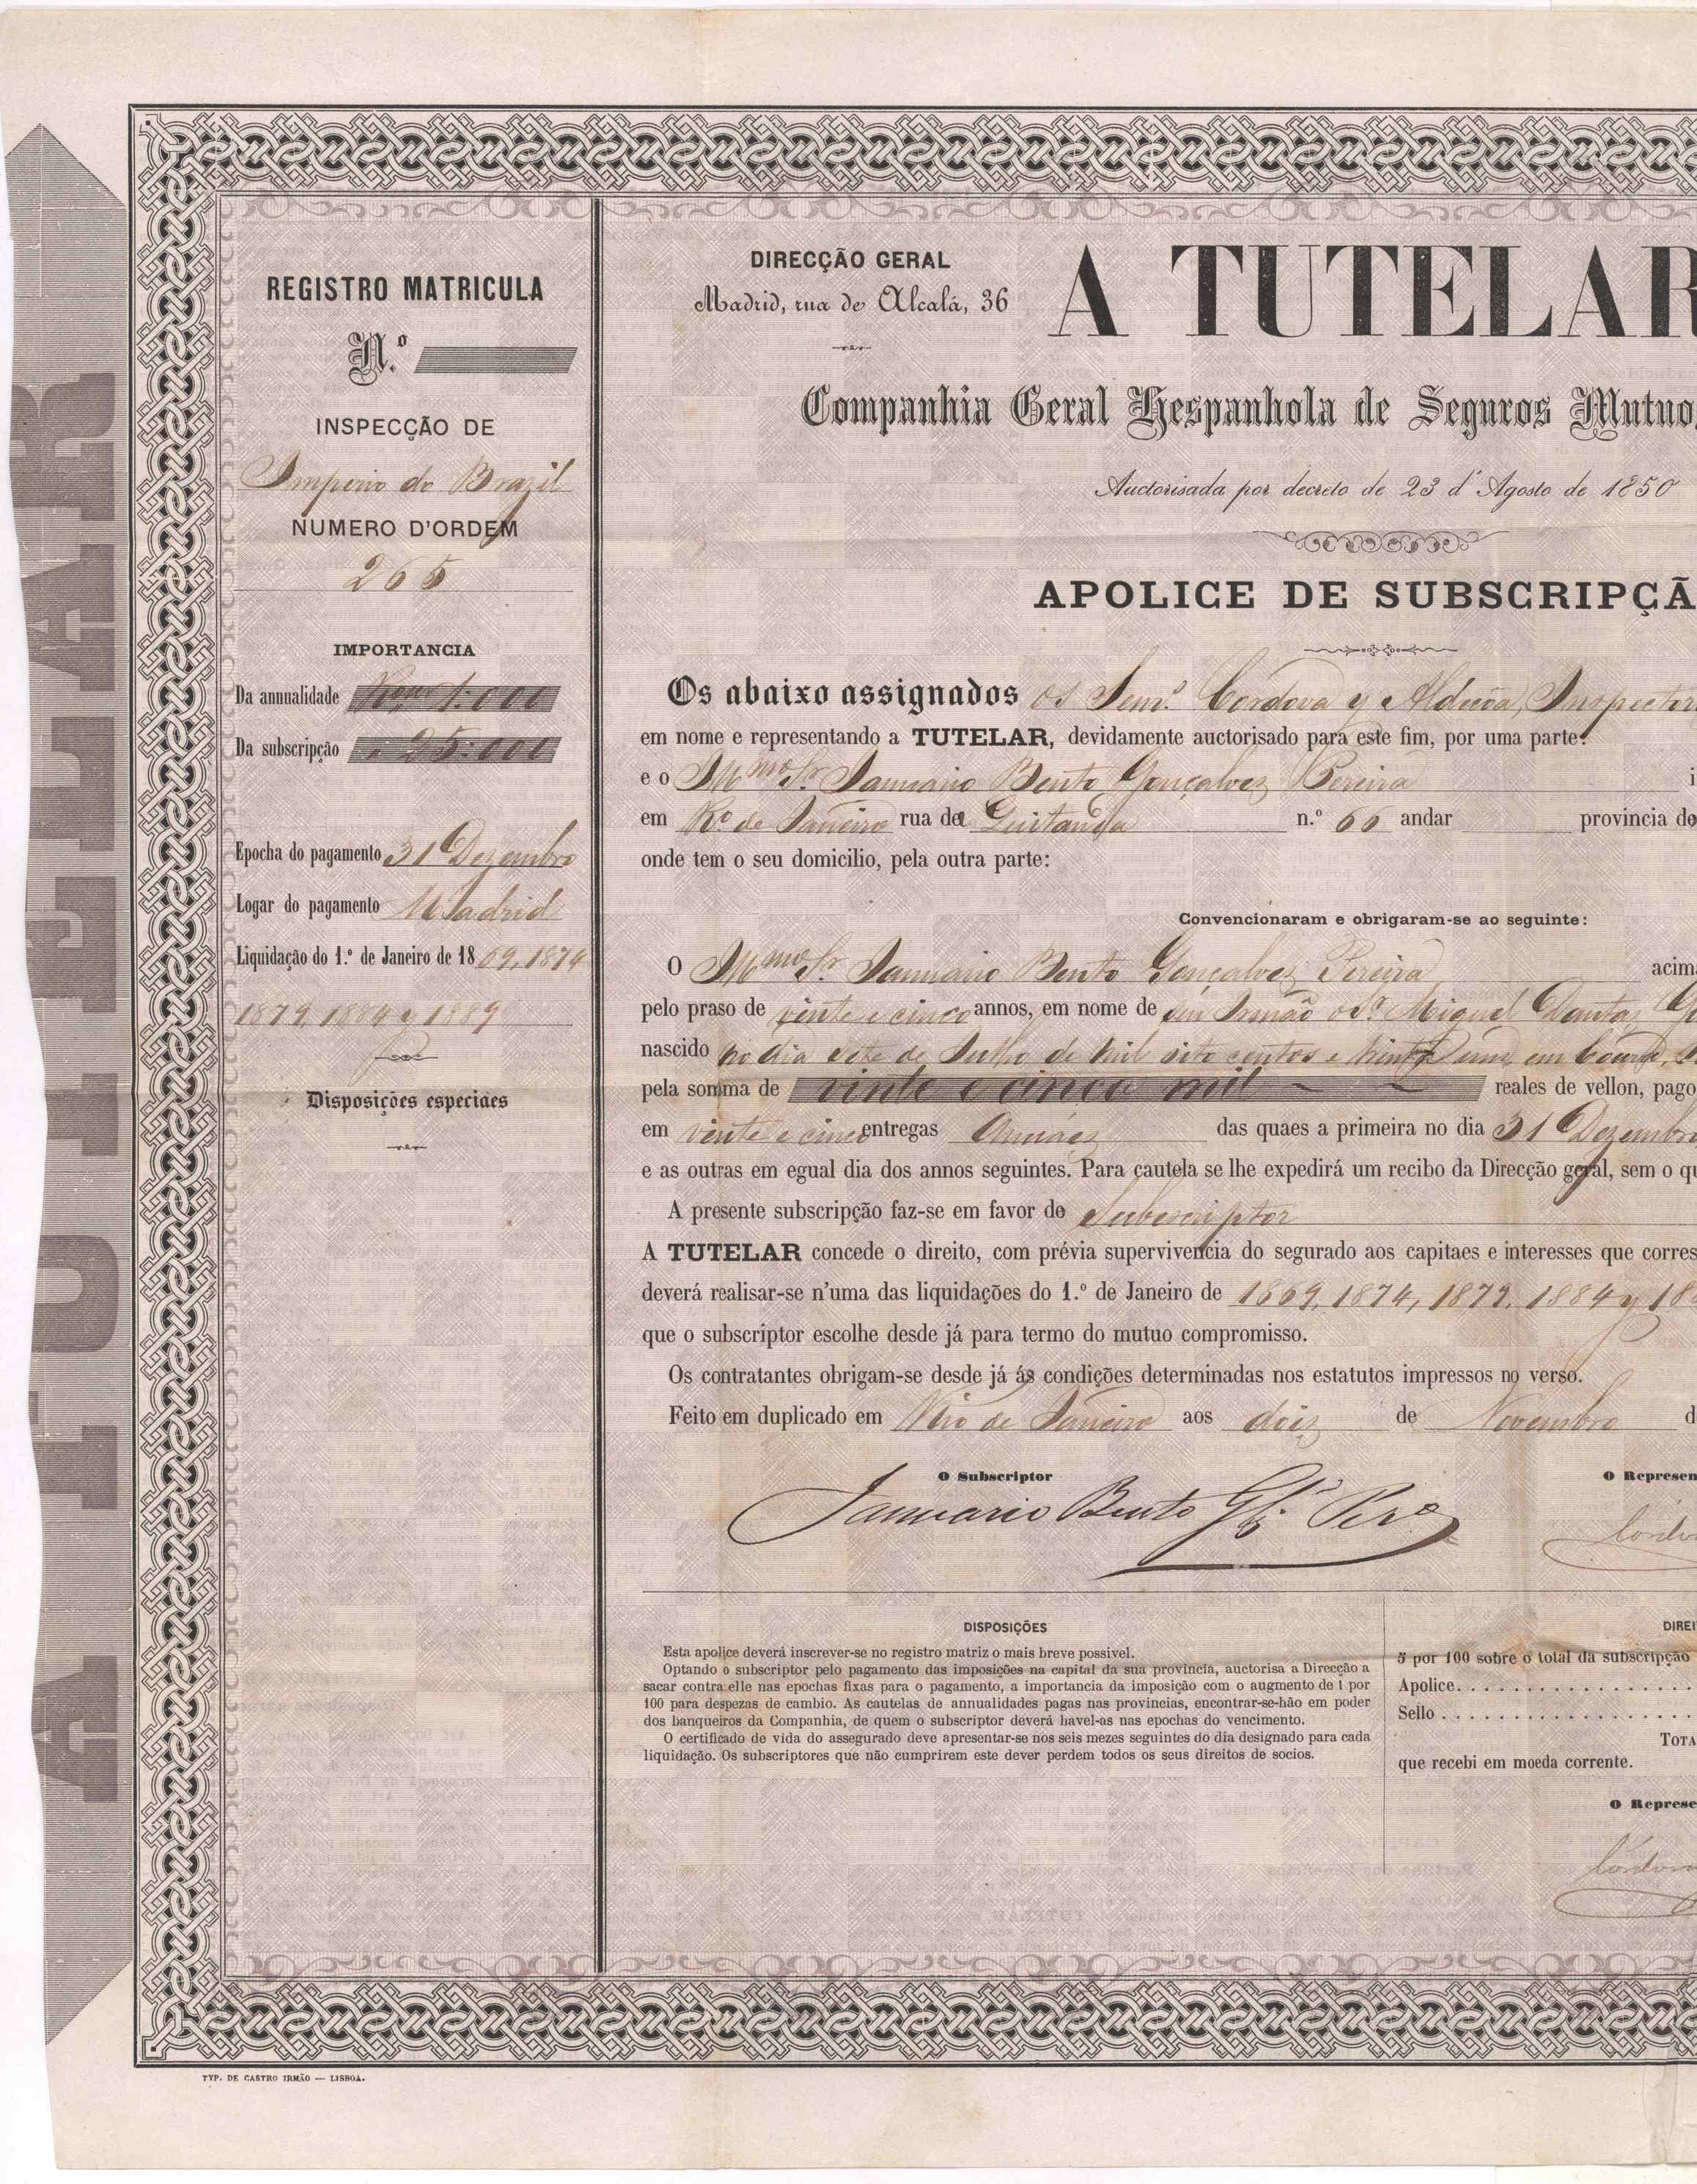 A TUTELAR
REGISTRO MATRICULA
N.º
INSPECÇÃO DE
Imperio do Brazil
NUMERO D'ORDEM
265
IMPORTANCIA
Da annualidade 1:000
Da subscripção 25:000
Epocha do pagamento 31 Dezembro
Logar do pagamento Madrid
Liquidação do 1.º de Janeiro de 1869, 1874
1879, 1884 y 1889
Disposições especiaes
DIRECÇÃO GERAL
Madrid, rua de Alcalá, 36
A TUTELAR
Companhia Geral Hespanhola de Seguros Mutuo
Auctorisada por decreto de 23 d'Agosto de 1850
APOLICE DE SUBSCRIPÇÃ
Os abaixo assignados os Cordova y Inspector
em nome e representando a TUTELAR, devidamente auctorisado para este fim, por uma parte:
e o Illmo Sr. Januario Bento Gonçalvez Pereira
em Ro de Janeiro rua da Quitanda n.º 66 andar provincia de
onde tem o seu domicilio, pela outra parte:
Convencionaram e obrigaram-se ao seguinte:
O Illmo Sr. Januario Bento Gonçalvez Pereira acim
pelo praso de vinte e cinco annos, em nome de seu Irmão o Sr. Miguel Dantas
nascido no dia sete de Julho de mil oito centos e trinta e um, em Coura,
pela somma de vinte e cinco mil reales de vellon, pago
em vinte e cinco entregas das quaes a primeira no dia 31 Dezembro
e as outras em egual dia dos annos seguintes. Para cautela se lhe expedirá um recibo da Direcção geral, sem o qu
A presente subscripção faz-se em favor do Subscriptor
A TUTELAR concede o direito, com prévia supervivencia do segurado aos capitaes e interesses que corres
deverá realisar-se n'uma das liquidações do 1.º de Janeiro de 1869, 1874, 1879, 1884 y 18
que o subscriptor escolhe desde já para termo do mutuo compromisso.
Os contratantes obrigam-se desde já ás condições determinadas nos estatutos impressos no verso.
Feito em duplicado em Rio de Janeiro aos dois de Novembro d
O Subscriptor
O Represen
Januario Bento Glz Perª
DISPOSIÇÕES
Esta apolice deverá inscrever-se no registro matriz o mais breve possivel.
Optando o subscriptor pelo pagamento das imposições na capital da sua provincia, auctorisa a Direcção a
sacar contra elle nas epochas fixas para o pagamento, a importancia da imposição com o augmento de 1 por
100 para despezas de cambio. As cautelas de annualidades pagas nas provincias, encontrar-se-hão em poder
dos banqueiros da Companhia, de quem o subscriptor deverá havel-as nas epochas do vencimento.
O certificado de vida do assegurado deve apresentar-se nos seis mezes seguintes do dia designado para cada
liquidação. Os subscriptores que não cumprirem este dever perdem todos os seus direitos de socios.
DIREI
5 por 100 sobre o total da subscripção
Apolice. . . . . . . . . . . . . . . . .
Sello . . . . . . . . . . . . . . . . . .
TOTA
que recebi em moeda corrente.
O Represe
TYP. DE CASTRO IRMÃO — LISBOA.